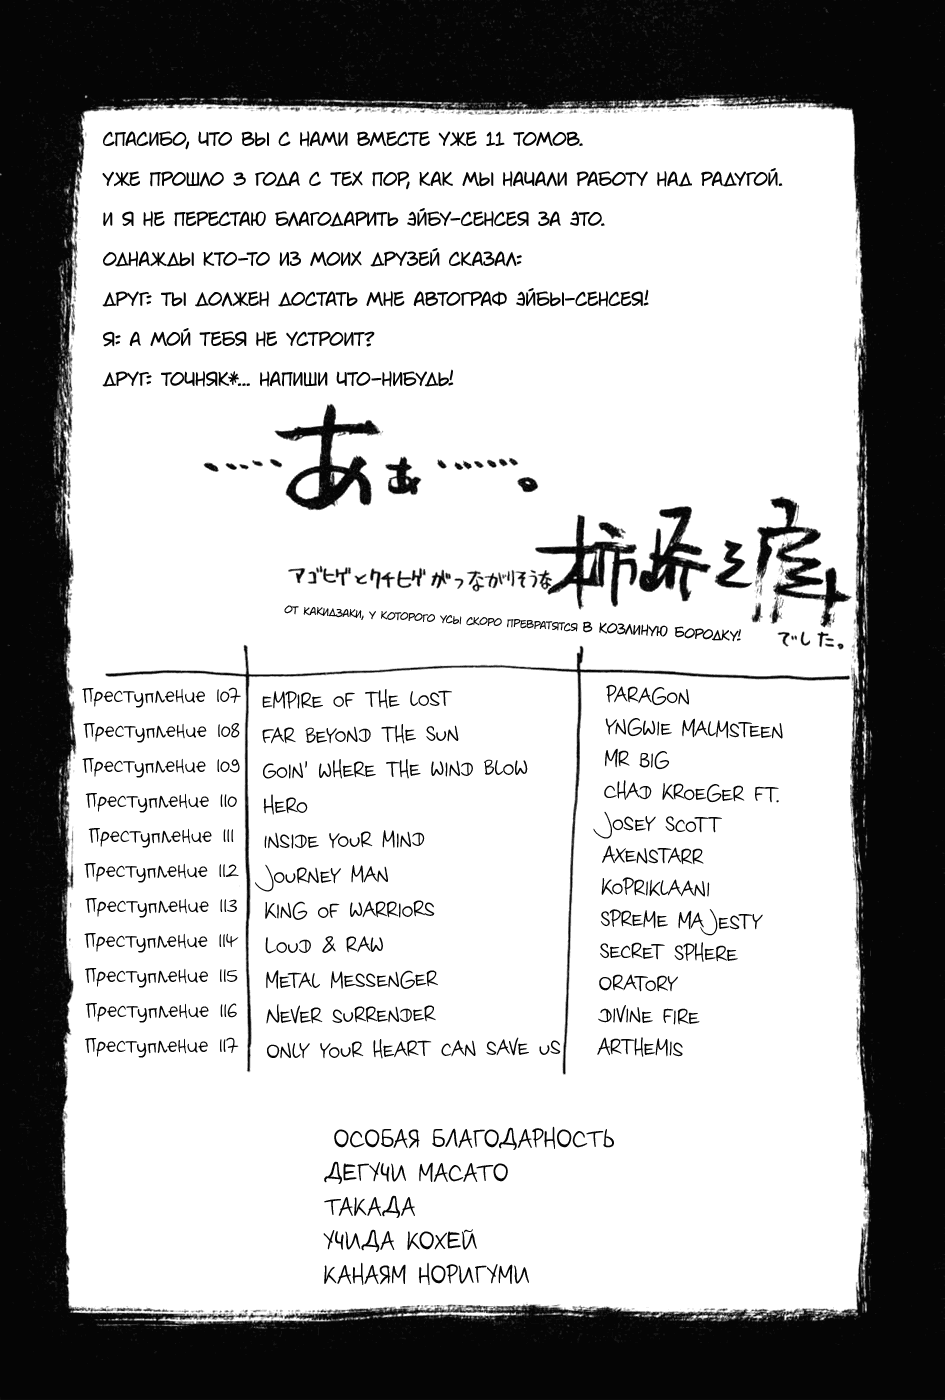 СПАСИБО, ЧТО ВЫ С НАМИ ВМЕСТЕ УЖЕ 11 ТОМОВ.
УЖЕ ПРОШЛО 3 ГОДА С ТЕХ ПОР, КАК МЫ НАЧАЛИ РАБОТУ НАД РАДУГОЙ.
И Я НЕ ПЕРЕСТАЮ БЛАГОДАРИТЬ ЭЙБУ-СЕНСЕЯ ЗА ЭТО.
ОДНАЖДЫ КТО-ТО ИЗ МОИХ ДРУЗЕЙ СКАЗАЛ:
ДРУГ: ТЫ ДОЛЖЕН ДОСТАТЬ МНЕ АВТОГРАФ ЭЙБЫ-СЕНСЕЯ!
Я: А МОЙ ТЕБЯ НЕ УСТРОИТ?
ДРУГ: ТОЧНЯК*... НАПИШИ ЧТО-НИБУДЬ!
……あぁ……。
アゴヒゲとクチヒゲがつながりそうな柿崎
ОТ КАКИДЗАКИ, У КОТОРОГО УСЫ СКОРО ПРЕВРАТЯТСЯ В КОЗЛИНУЮ БОРОДКУ!
でした。
Преступление 107 EMPIRE OF THE LOST PARAGON
Преступление 108 FAR BEYOND THE SUN YNGWIE MALMSTEEN
Преступление 109 GOIN' WHERE THE WIND BLOW MR BIG
Преступление 110 HERO CHAD KROEGER FT.
JOSEY SCOTT
Преступление 111 INSIDE YOUR MIND AXENSTARR
Преступление 112 JOURNEY MAN KOPRIKLAANI
Преступление 113 KING OF WARRIORS SPREME MAJESTY
Преступление 114 LOUD & RAW SECRET SPHERE
Преступление 115 METAL MESSENGER ORATORY
Преступление 116 NEVER SURRENDER DIVINE FIRE
Преступление 117 ONLY YOUR HEART CAN SAVE US ARTHEMIS
ОСОБАЯ БЛАГОДАРНОСТЬ
ДЕГУЧИ МАСАТО
ТАКАДА
УЧИДА КОХЕЙ
КАНАЯМ НОРИГУМИ